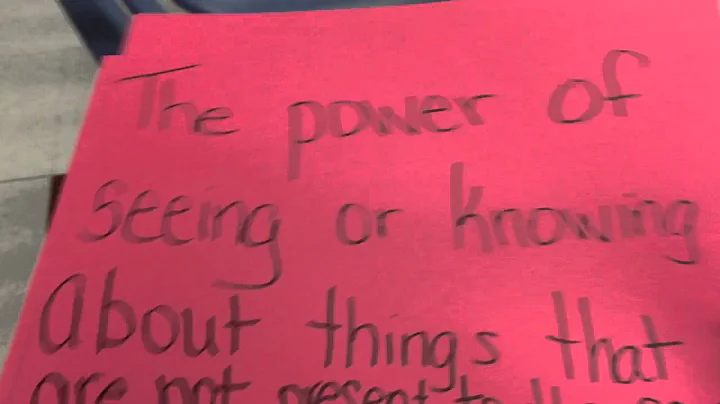 The power of
seeing or knowing
About things that
are not present to the